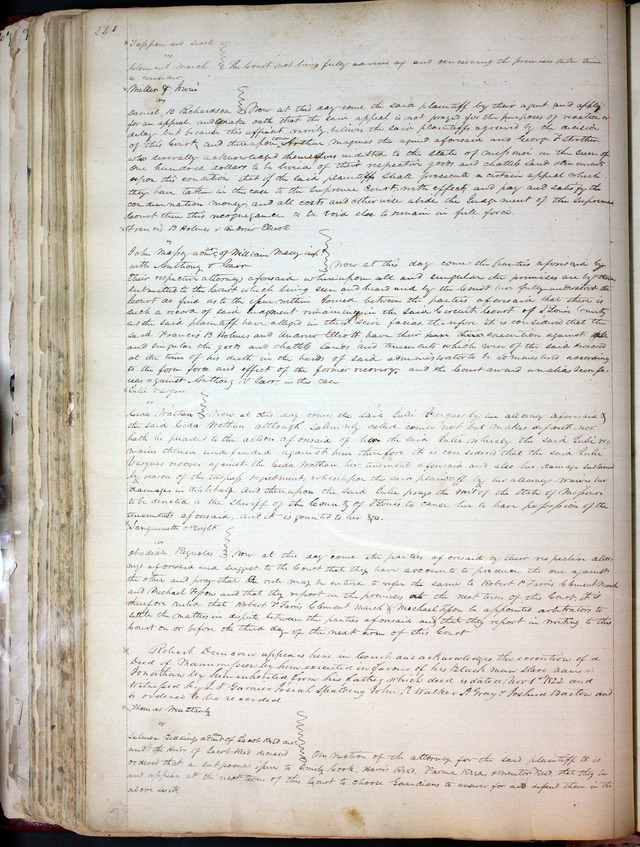 226
Tappan and Mark
vs
Clement March } The Court not being fully advised of and concerning the premises take time
to consider
Miller & Irwin
vs
Daniel B Richardson } Now at this day come the said plaintiff by their agent and apply
for an appeal, and make oath that the said appeal is not prayed for the purposes of vexation or
delay but because this affiant verily believes the said plaintiffs agrieved by the decision
of this Court, and thereupon comes Arthur Magines the agent aforesaid and George Strother
who severally acknowledged themselves indebted to the State of Missouri in the sum of
One hundred dollars to be levied of their respective goods and chattels lands and tenements
upon this condition that if the said plaintiffs shall prosecute a certain appeal which
they have taken in this case to the Supreme Court with effect and pay and satisfy the
condemnation money and all costs and otherwise abide the Judgement of the Supreme
Court then this recognizance to be void else to remain in full force.
Francis B Holmes & Andrew Elliott
vs
John Massey admr of William Massey
with Anthony & Carr } Now at this day come the parties aforesaid by
their respective attornies aforesaid whereupon all and singular the premises are by them
submitted to the Court which being seen and heard and by the Court here fully understood the
Court as find as to the issue within Joined between the parties aforesaid that there is
such a record of said Judgment remaining in the said Circuit Court of St Louis County
as the said plaintiff have alleged in their scire facias, therefore it is considered that the
said Francis B Holmes and Andrew Elliott have their execution against all
and singular the goods and chattels lands and tenements which were of the said deceased
at the time of his death in the hands of said administrator to be administered according
to the form force and effect of the former recovery, and the Court award an alias scire fa-
cias against Anthony & Carr in this case
Julie Vasques
vs
Ceda Wathan } Now at this day comes the said Julie Vasques by her attorney aforesaid &
the said Ceda Wathan although Solemnly called comes not but makes default nor
hath he pleaded to the action aforesaid of her the said Julie whereby the said Julie re-
mains therein undefended against him therefore it is considered that the said Julie
Vasques recover against the Ceda Wathan her tenement aforesaid and also her damages sustained
by reason of the trespass & ejectment, whereupon the said plaintiff by her attorney waives her
damages in this behalf. And thereupon the said Julie prays the writ of the State of Missouri
to be directed to the Sheriff of the County of St Louis to cause her to have possession of the
tenements aforesaid, and it is granted to her &c.
Sanguinette & Bright
vs
Obediah Reynolds } Now at this day come the parties aforesaid by their respective attor-
nies aforesaid and suggest to the Court that they have accounts to produce the one against
the other and pray that a rule may be entered to refer the same to Robert P Farris Clement March
and Michael Tesson and that they report in the premises at the next term of this Court. It is
therefore ruled that Robert P Farris Clement March & Michael Tesson be appointed arbitrators to
settle the matters in dispute between the parties aforesaid and that they report in writing to this
Court on or before the third day of the next term of this Court
Robert Duncan appears here in Court and acknowledges the execution of a
Deed of Manumission by him executed in favour of his Black man slave named
Jonathan by him inherited from his father, which deed is dated Nov 1st 1822 and
witnessed by J. V Garnier Josiah Spalding John K Walker A Gray & Joshua Barton and
is ordered to be recorded
Thomas
vs
Salmon Giddings admr of Jacob Reed decd
and the Heirs of Jacob Reed deceased } On motion of the attorney for the said plaintiff it is
ordered that a subpoena issue to Emily Cook, Harris Reed, Parma Reed, & Mentor Reed, that they be
and appear at the next term of this Court to choose Guardians to answer for and defend them in the
above suit